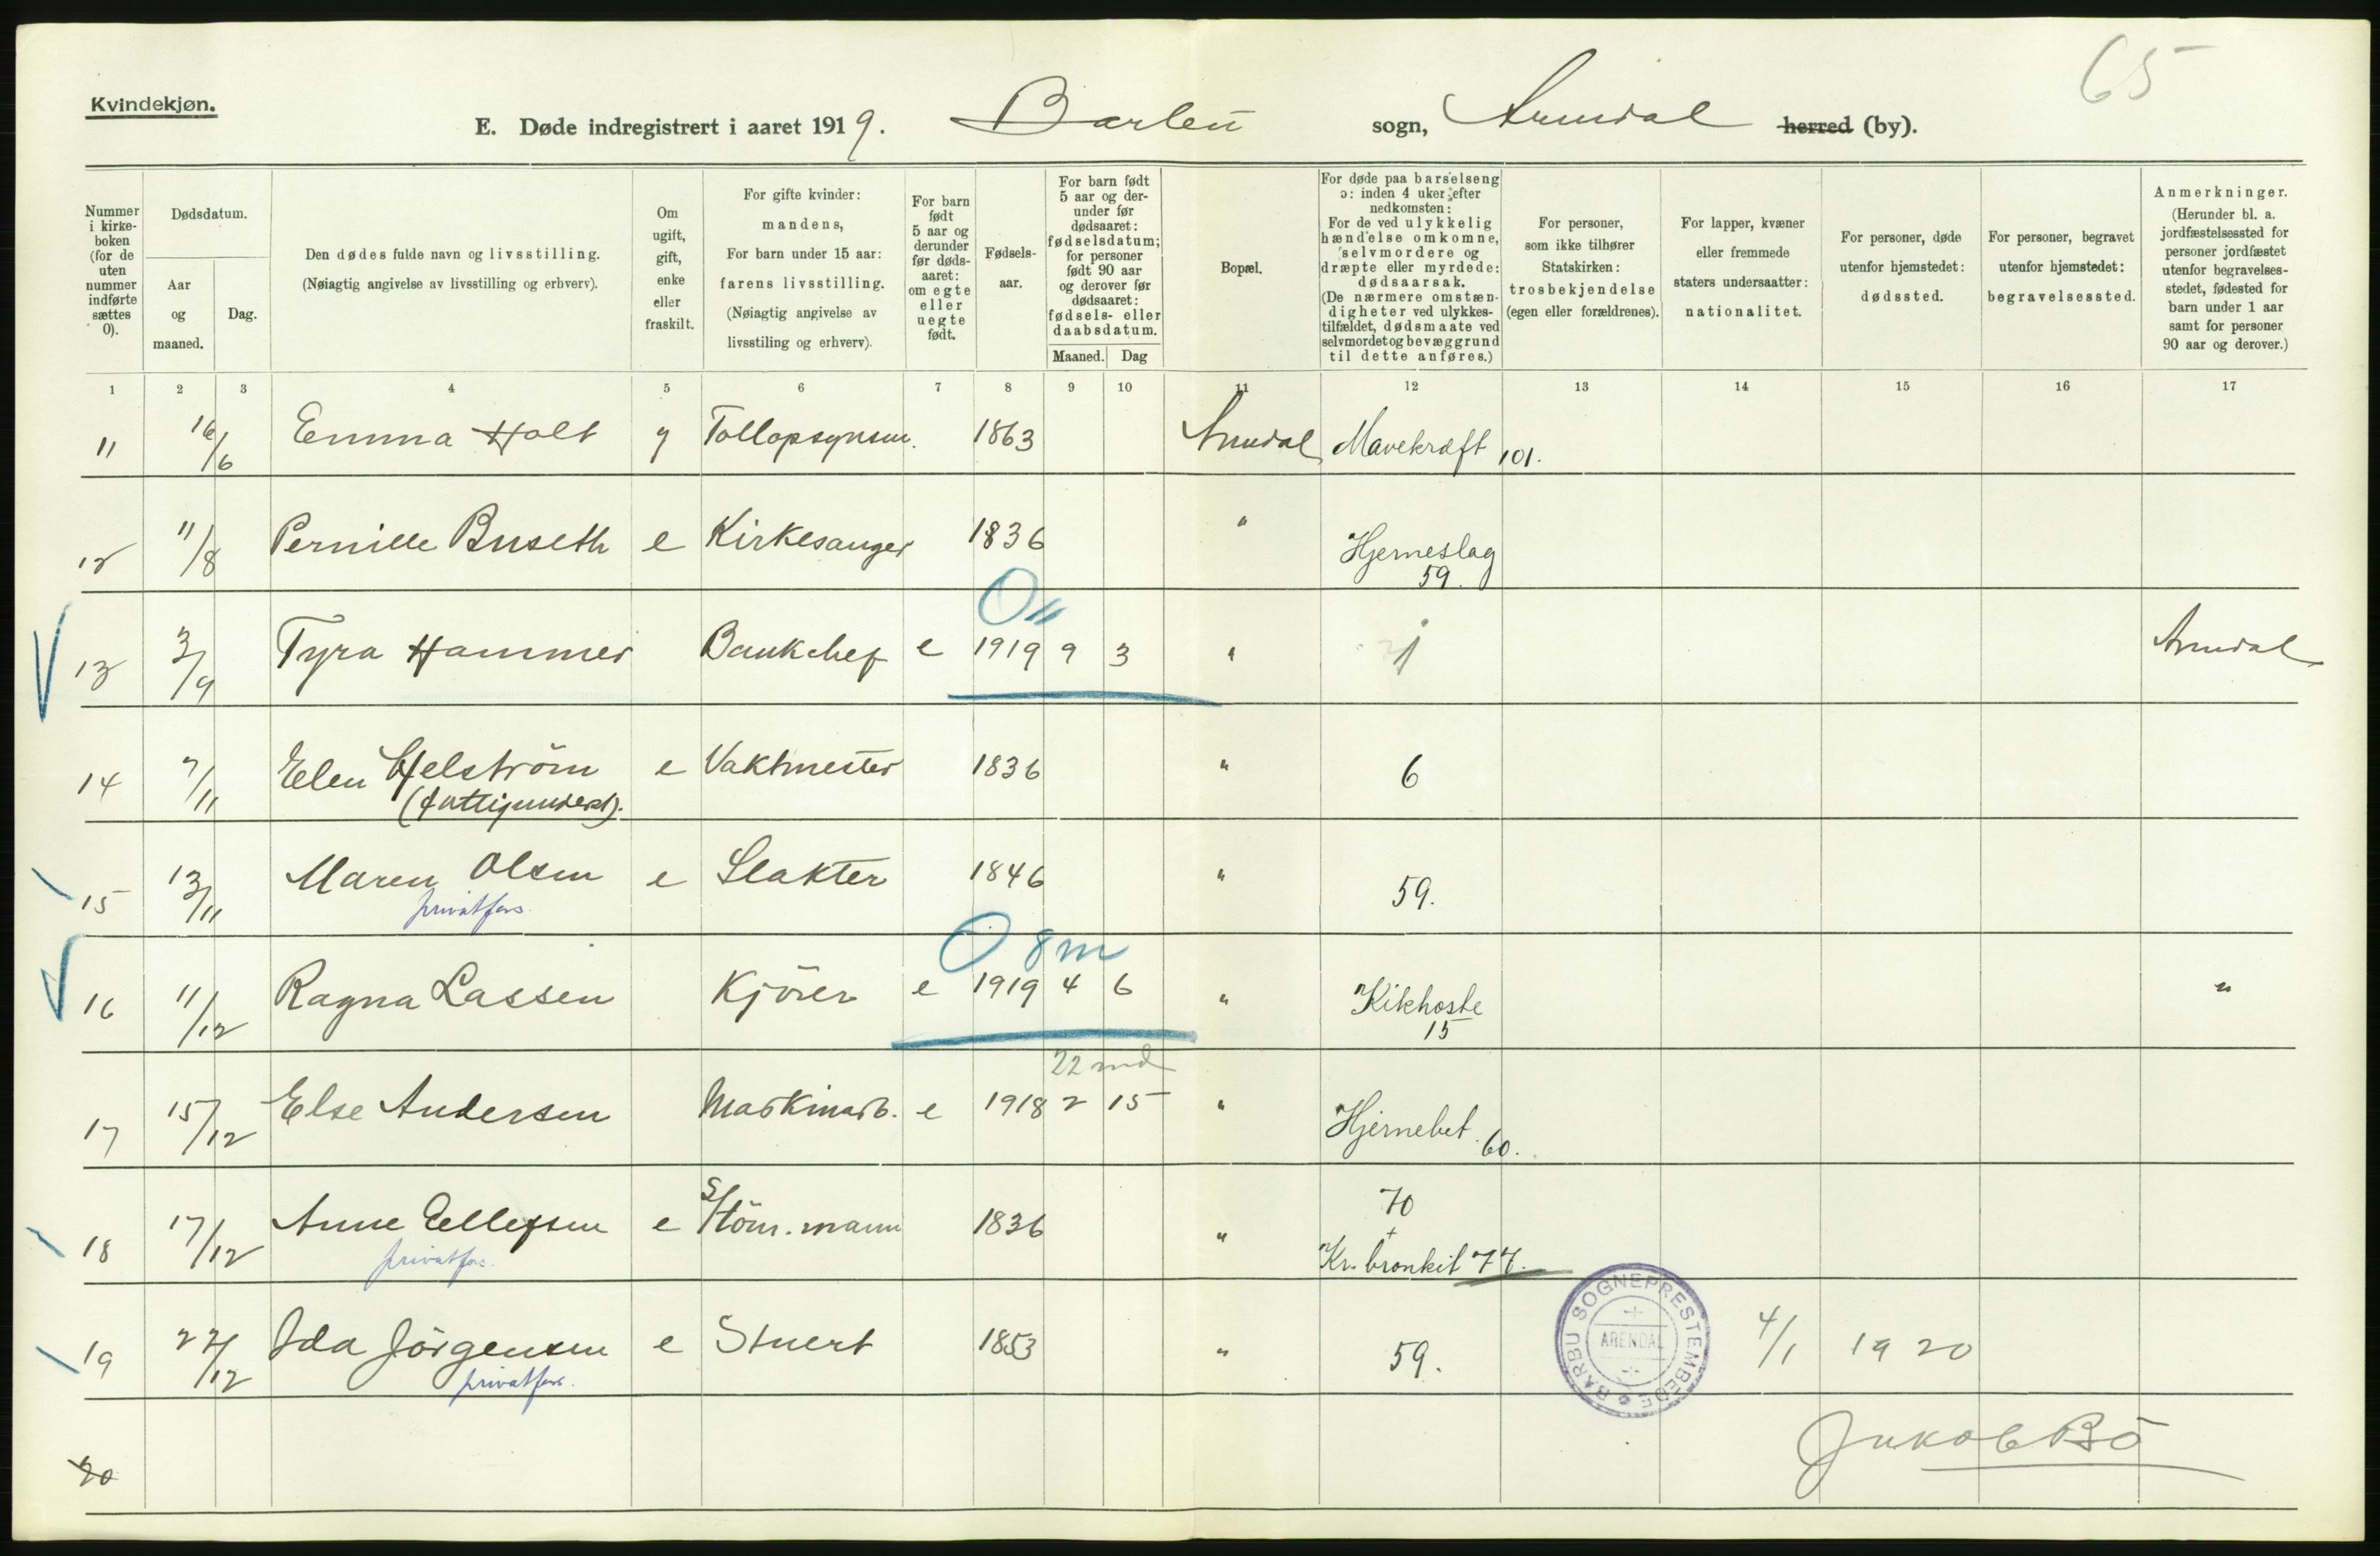 65
Kvindekjøn.
E. Døde indregistrert i aaret 1919. Barbu sogn, Arendal herred (by).
Nummer i kirke-boken (for de uten nummer indførte sættes 0).
Dødsdatum.
Aar og maaned.
Dag.
Den dødes fulde navn og livsstilling.
(Nøiagtig angivelse av livsstilling og erhverv).
Om ugift, gift, enke eller fraskilt.
For gifte kvinder: mandens,
For barn under 15 aar: farens livsstilling.
(Nøiagtig angivelse av livsstiling og erhverv).
For barn født 5 aar og derunder før døds-aaret: om egte eller uegte født.
Fødsels-aar.
For barn født 5 aar og der-under før dødsaaret: fødselsdatum; for personer født 90 aar og derover før dødsaaret: fødsels- eller daabsdatum.
Maaned. Dag
Bopæl.
For døde paa barselseng ɔ: inden 4 uker efter nedkomsten:
For de ved ulykkelig hændelse omkomne, selvmordere og dræpte eller myrdede: dødsaarsak.
(De nærmere omstæn-digheter ved ulykkes-tilfældet, dødsmaate ved selvmordet og bevæggrund til dette anføres.)
For personer, som ikke tilhører Statskirken: trosbekjendelse (egen eller forældrenes).
For lapper, kvæner eller fremmede staters undersaatter: nationalitet.
For personer, døde utenfor hjemstedet: dødssted.
For personer, begravet utenfor hjemstedet: begravelsessted.
Anmerkninger.
(Herunder bl. a. jordfæstelsessted for personer jordfæstet utenfor begravelses-stedet, fødested for barn under 1 aar samt for personer 90 aar og derover.)
1 2 3 4 5 6 7 8 9 10 11 12 13 14 15 16 17
11 16/6 Emma Holt g Tollopsynsm. 1863 Arendal Mavekræft 101.
12 11/8 Pernille Buseth e Kirkesanger 1836 " Hjerneslag
59.
0 "
13 3/9 Tyra Hammer Bankchef e 1919 9 3 " 1 Arendal
14 7/11 Elen Hjelström e Vaktmester 1836 " 6
(fattigunderst).
15 13/11 Maren Olsen e Slakter 1846 " 59.
privatfors.
0 8 m
16 11/12 Ragna Lassen Kjörer e 1919 4 6 " Kikhoste "
15
22 md
17 15/12 Else Andersen Maskinarb. e 1918 2 15 " Hjernebet. 60.
70
+
18 17/12 Anne Ellefsen e Stöm.mann 1836 " Kr. bronkit 77.
privatfors.
19 22/12 Ida Jörgensen e Stuert 1853 " 59.
privatfors.
BARBU SOGNEPRESTEMBEDE
ARENDAL
4/1 1920
Jakob Bö
20